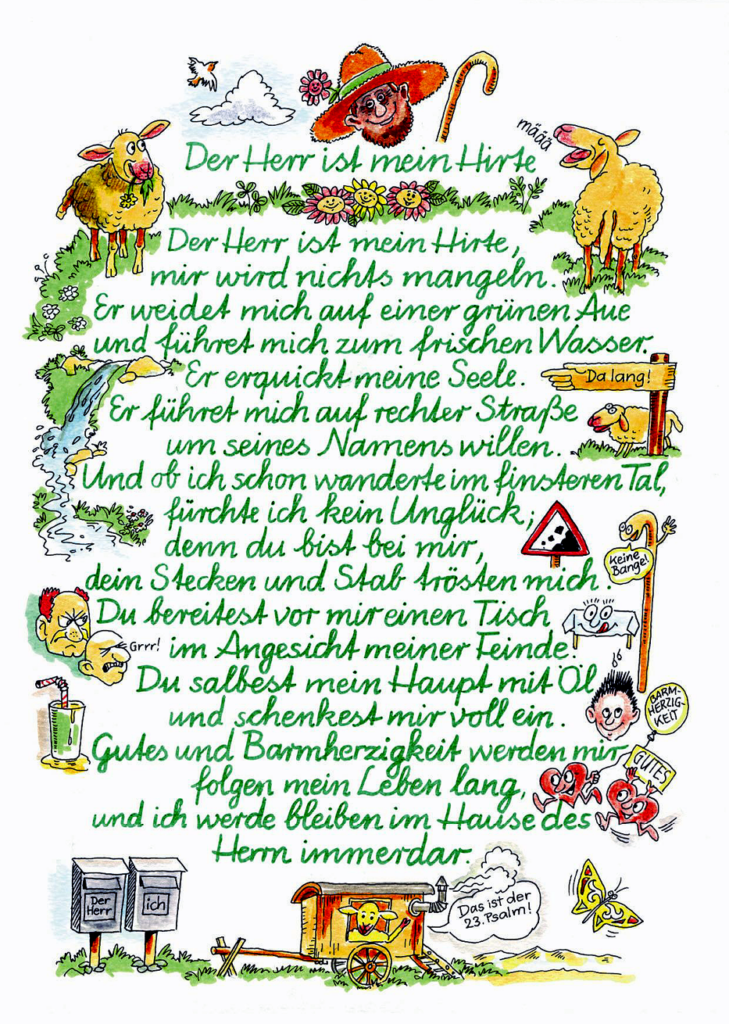 määä
Der Herr ist mein Hirte
Der Herr ist mein Hirte,
mir wird nichts mangeln.
Er weidet mich auf einer grünen Aue
und führet mich zum frischen Wasser.
Er erquickt meine Seele.
Da lang!
Er führet mich auf rechter Straße
um seines Namens willen.
Und ob ich schon wanderte im finsteren Tal,
fürchte ich kein Unglück;
denn du bist bei mir,
Keine
Bange!
dein Stecken und Stab trösten mich.
Du bereitest vor mir einen Tisch
Grrr!
im Angesicht meiner Feinde.
Du salbest mein Haupt mit Öl
und schenkest mir voll ein.
BARM-
HERZIG-
KEIT
Gutes und Barmherzigkeit werden mir
GUTES
folgen mein Leben lang,
und ich werde bleiben im Hause des
Herrn immerdar.
Der
Herr
ich
Das ist der
23. Psalm!